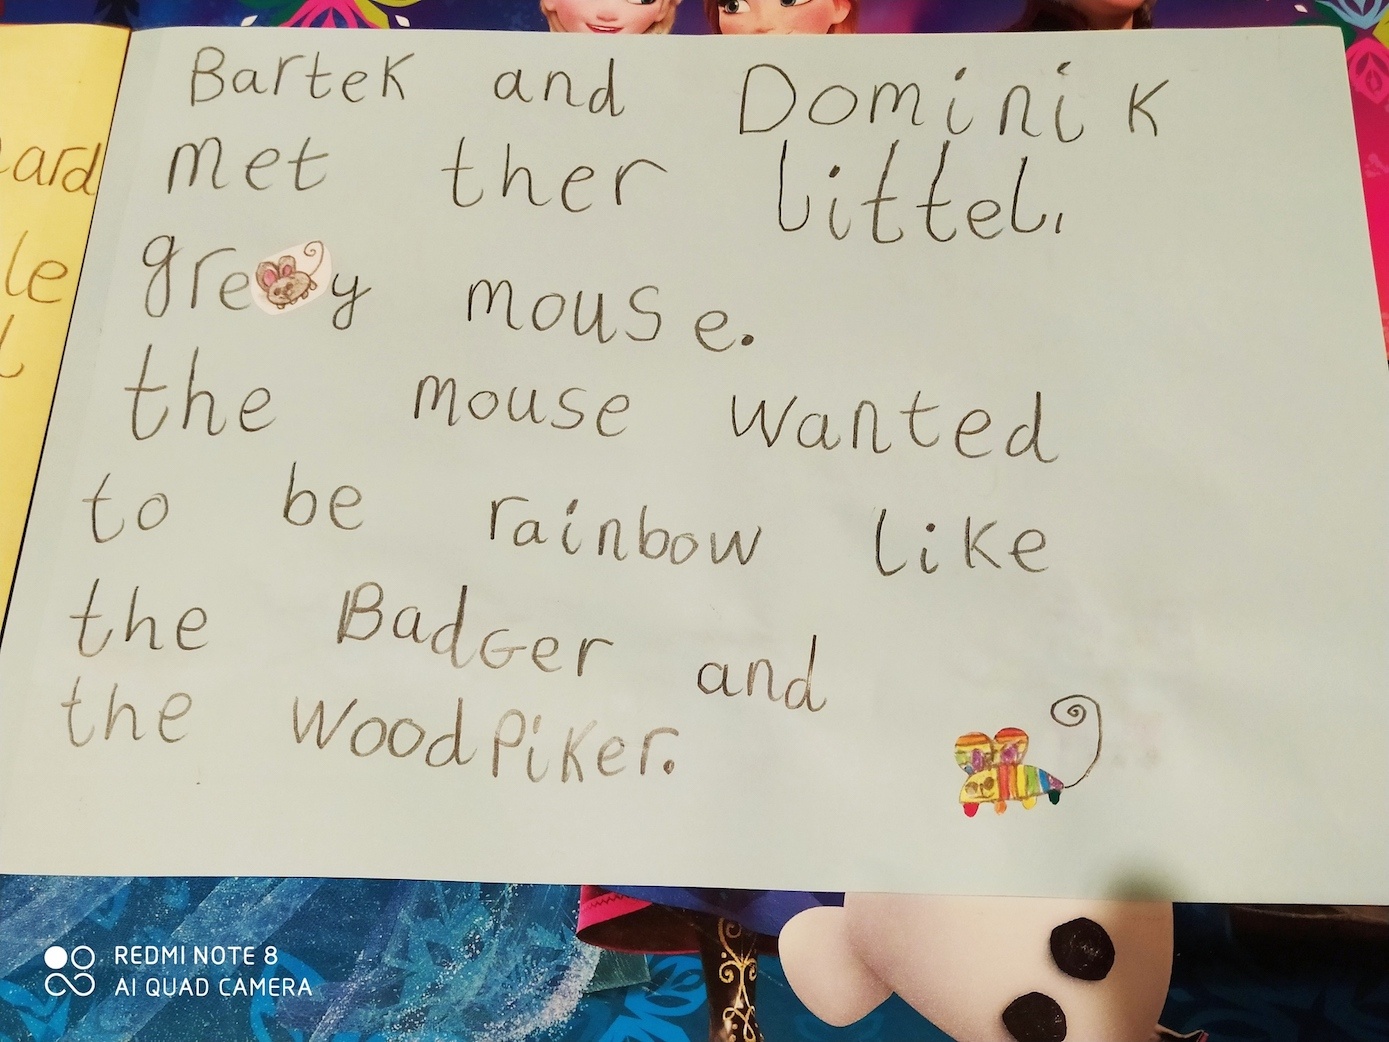 Bartek and Dominik
met ther littel,
grey mouse.
the mouse wanted
to be rainbow like
the BadGer and
the woodPiker.
ard
le
REDMI NOTE 8
AI QUAD CAMERA